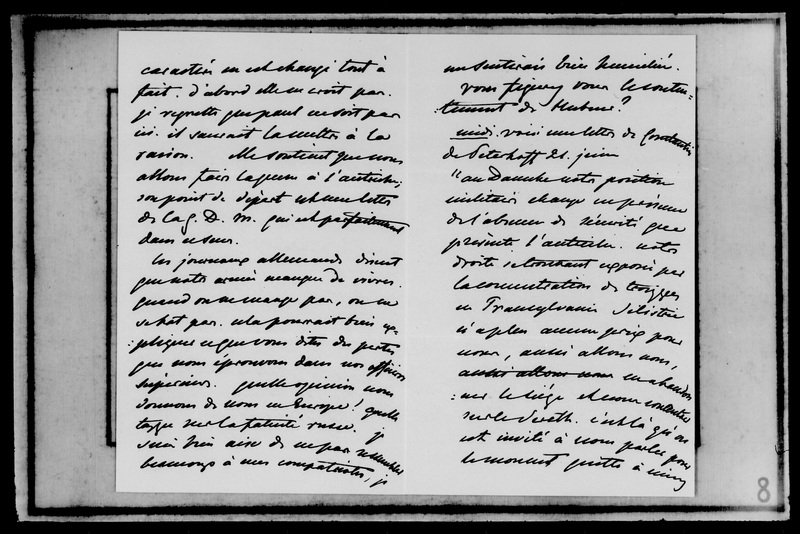 caractère en est changé tout à
fait. d'abord elle ne croit pas.
je regrette que paul ne soit pas
ici. il saurait la mettre à la
raison. Elle soutient que nous
allons faire la guerre à l'autriche;
son point de départ est une lettre
de la g. D. M. qui est parfaitement
dans ce sens.
les journaux allemands disent
que notre armée manque de vivres.
quand on ne mange pas, on ne
se bat pas. cela pourrait bien ex-
:pliquer ce que vous dites des pertes
que nous éprouvons dans nos officiers
supérieurs. quelle opinion nous
donnons de nous en Europe! quelle
tappe sur la fatuité russe. je
suis bien aise de ne pas ressembler
beaucoup à mes compatriotes, je
me sentirais bien humiliée.
vous figurez vous le conten-
:tement de Hubner?
midi. voici une lettre de Constantin
de Peterhoff 21. juin
"au Danube notre position
militaire change en présence
de l'absence de sécurité que
présente l'autriche. notre
droite se trouvant exposée par
la concentration de troupes
en Transylvanie Silistrie
n'a plus aucun prix pour
nous, aussi allons nous,
aussi allons nous en abandon
:ner le siège et nous concentrer
sur le Sereth. c'est là qu'on
est invité à nous parler pour
le moment quitte à
8